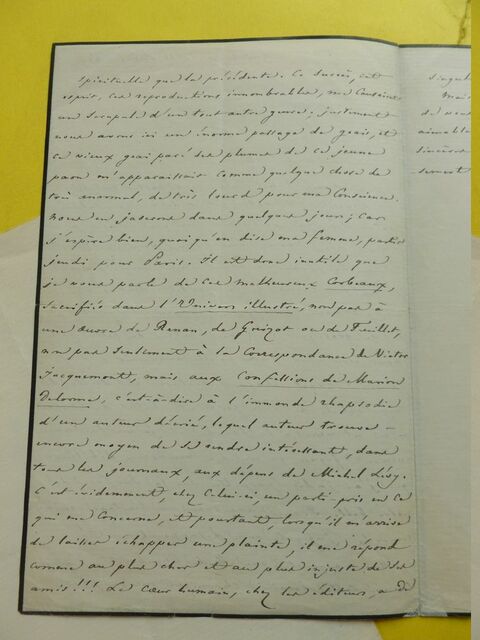 spirituelle que la précédente. Ce succès, cet
esprit, ces reproductions innombrables, me
un scrupule d'un tout autre genre; justement
nous avons ici un énorme passage de geais, et
ce vieux geai paré des plumes de ce jeune
paon m'apparaissait comme quelque chose de
très anormal, de très lourd pour ma conscience.
Nous en jaserons dans quelques jours; car
j'espère bien, quoiqu'en dise ma femme, partir
jeudi pour Paris. Il est donc inutile que
je vous parle de ces malheureux Corbeaux,
sacrifiés dans l'Univers illustré, non pas à
une œuvre de Renan, de Guizot ou de Feuillet,
non pas seulement à la Correspondance de Victor
Jacquemont, mais aux Confessions de Marion
Delorme, c'est-à-dire à l'immonde rhapsodie
d'un auteur décrié, lequel auteur trouve
encore moyen de se rendre intéressant, dans
tous les journaux, aux dépens de Michel Lévy.
C'est évidemment, chez celui-ci, un parti pris en ce
qui me concerne, et pourtant, lorsqu'il m'arrive
de laisser échapper une plainte, il me répond
comme au plus cher et au plus injuste de ses
amis!!! Le cœur humain, chez les éditeurs, a de
singul
Mais
de vous
aimable
sincère